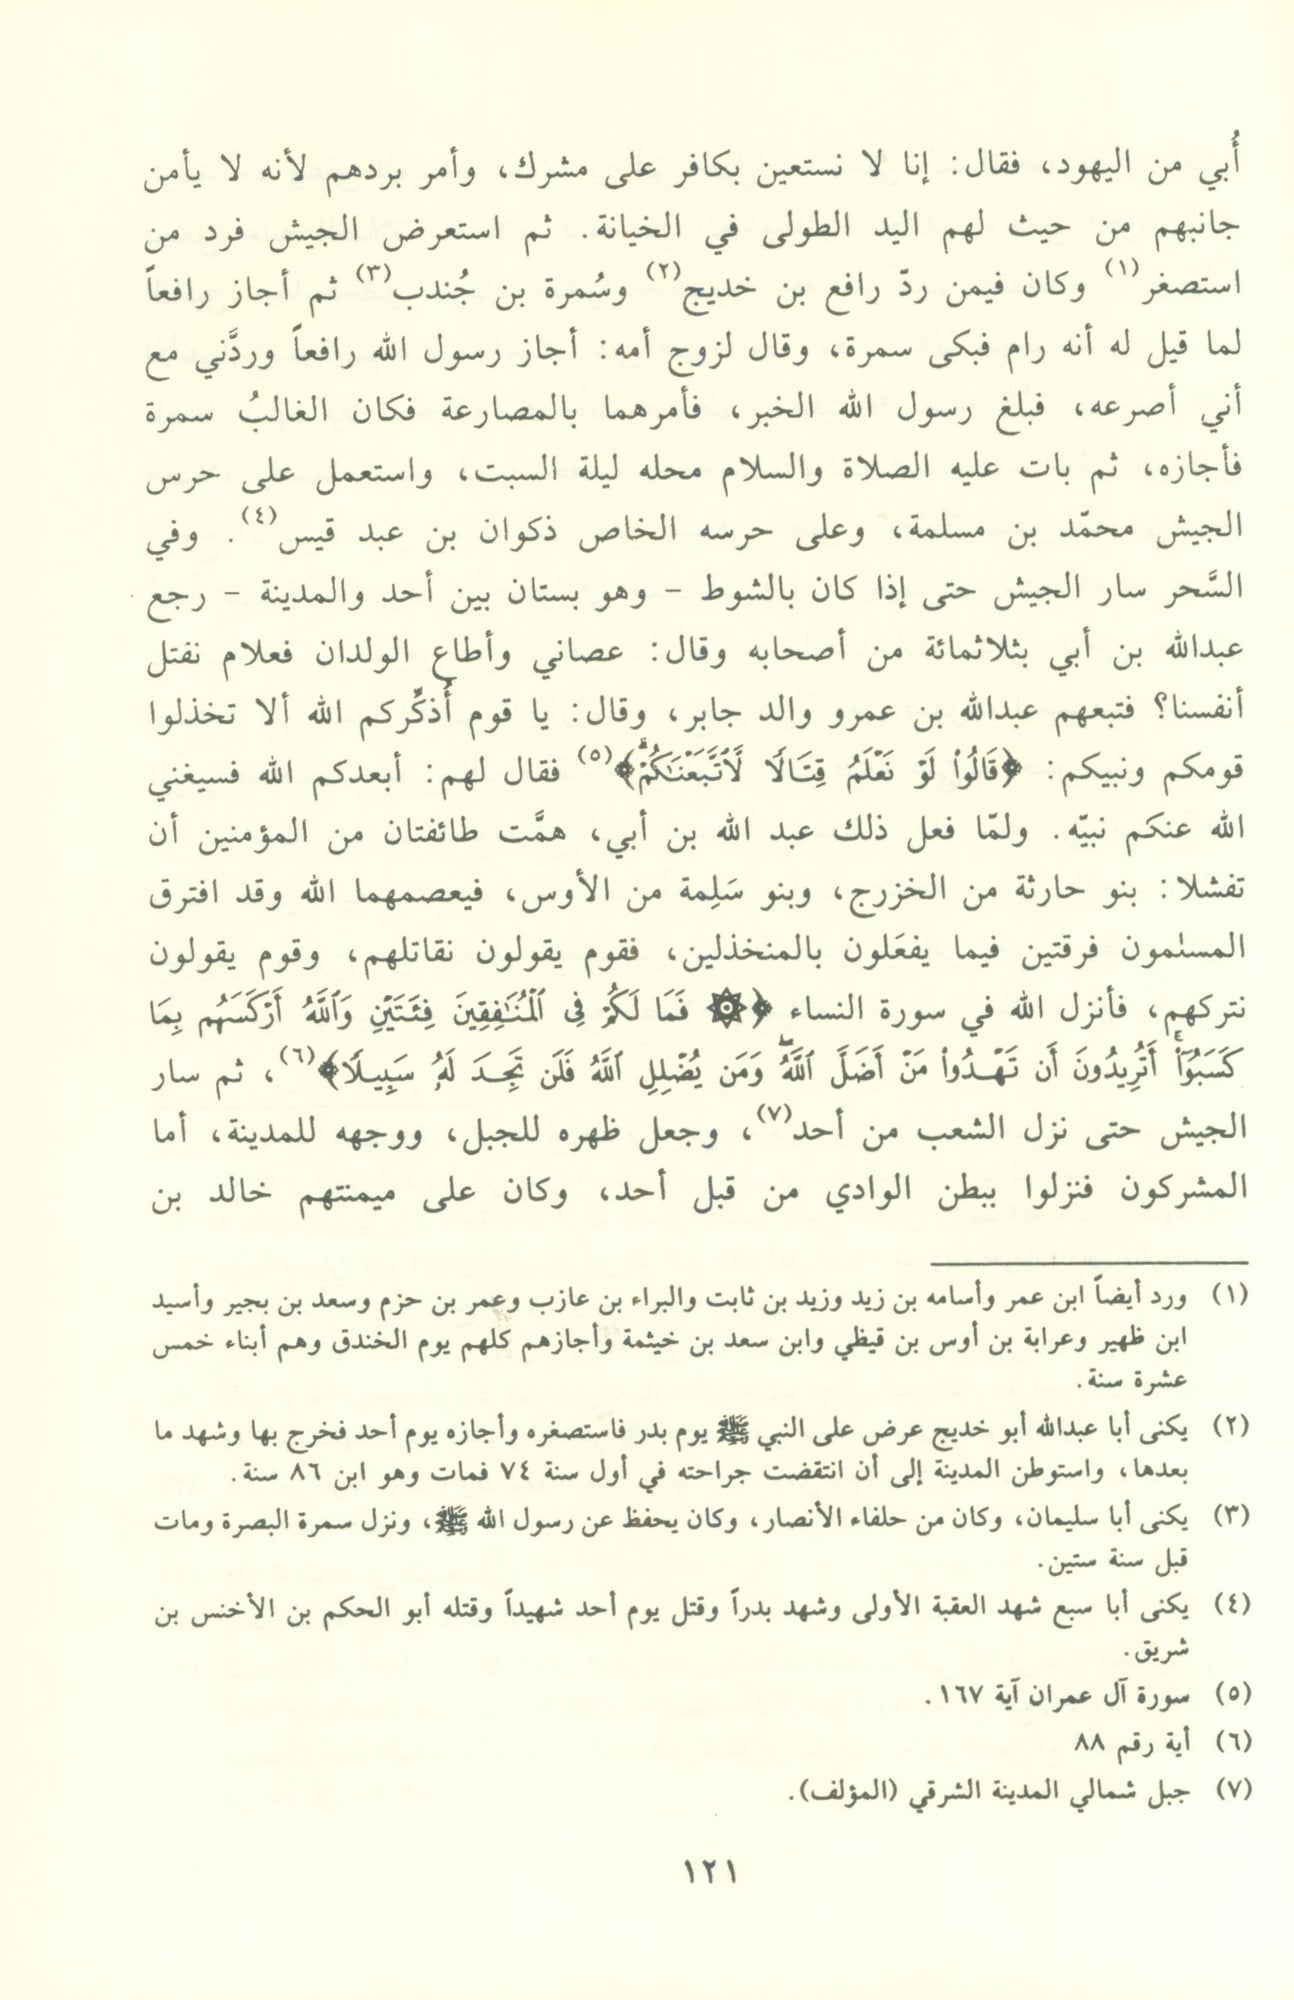 أُبي من اليهود، فقال: إنا لا نستعين بكافر على مشرك، وأمر بردهم لأنه لا يأمن
جانبهم من حيث لهم اليد الطولى في الخيانة. ثم استعرض الجيش فرد من
استصغر(١) وكان فيمن ردّ رافع بن خديج(٢) وسُمرة بن جُندب(٣) ثم أجاز رافعاً
لما قيل له أنه رام فبكى سمرة، وقال لزوج أمه: أجاز رسول الله رافعاً وردَّني مع
أني أصرعه، فبلغ رسول الله الخبر، فأمرهما بالمصارعة فكان الغالبُ سمرة
فأجازه، ثم بات عليه الصلاة والسلام محله ليلة السبت، واستعمل على حرس
الجيش محمّد بن مسلمة، وعلى حرسه الخاص ذكوان بن عبد قيس(٤). وفي
السَّحر سار الجيش حتى إذا كان بالشوط - وهو بستان بين أحد والمدينة - رجع
عبدالله بن أبي بثلاثمائة من أصحابه وقال: عصاني وأطاع الولدان فعلام نقتل
أنفسنا؟ فتبعهم عبدالله بن عمرو والد جابر، وقال: يا قوم أُذكِّركم الله ألا تخذلوا
قومكم ونبيكم: ﴿قَالُوا۟ لَوْ نَعْلَمُ قِتَالًا لَّٱتَّبَعْنَـٰكُمْ ۗ﴾(٥) فقال لهم: أبعدكم الله فسيغني
الله عنكم نبيّه. ولمّا فعل ذلك عبد الله بن أبي، همَّت طائفتان من المؤمنين أن
تفشلا: بنو حارثة من الخزرج، وبنو سَلِمة من الأوس، فيعصمهما الله وقد افترق
المسلمون فرقتين فيما يفعَلون بالمنخذلين، فقوم يقولون نقاتلهم، وقوم يقولون
نتركهم، فأنزل الله في سورة النساء ﴿۞ فَمَا لَكُمْ فِى ٱلْمُنَـٰفِقِينَ فِئَتَيْنِ وَٱللَّهُ أَرْكَسَهُم بِمَا
كَسَبُوٓا۟ ۚ أَتُرِيدُونَ أَن تَهْدُوا۟ مَنْ أَضَلَّ ٱللَّهُ ۖ وَمَن يُضْلِلِ ٱللَّهُ فَلَن تَجِدَ لَهُۥ سَبِيلًا﴾(٦)، ثم سار
الجيش حتى نزل الشعب من أحد(٧)، وجعل ظهره للجبل، ووجهه للمدينة، أما
المشركون فنزلوا ببطن الوادي من قبل أحد، وكان على ميمنتهم خالد بن
(١) ورد أيضاً ابن عمر وأسامه بن زيد وزيد بن ثابت والبراء بن عازب وعمر بن حزم وسعد بن بجير وأسيد
ابن ظهير وعرابة بن أوس بن قيظي وابن سعد بن خيثمة وأجازهم كلهم يوم الخندق وهم أبناء خمس
عشرة سنة.
(٢) يكنى أبا عبدالله أبو خديج عرض على النبي ﷺ يوم بدر فاستصغره وأجازه يوم أحد فخرج بها وشهد ما
بعدها، واستوطن المدينة إلى أن انتقضت جراحته في أول سنة ٧٤ فمات وهو ابن ٨٦ سنة.
(٣) يكنى أبا سليمان، وكان من حلفاء الأنصار، وكان يحفظ عن رسول الله ﷺ، ونزل سمرة البصرة ومات
قبل سنة ستين.
(٤) يكنى أبا سبع شهد العقبة الأولى وشهد بدراً وقتل يوم أحد شهيداً وقتله أبو الحكم بن الأخنس بن
شريق.
(٥) سورة آل عمران آية ١٦٧.
(٦) أية رقم ٨٨
(٧) جبل شمالي المدينة الشرقي (المؤلف).
١٢١